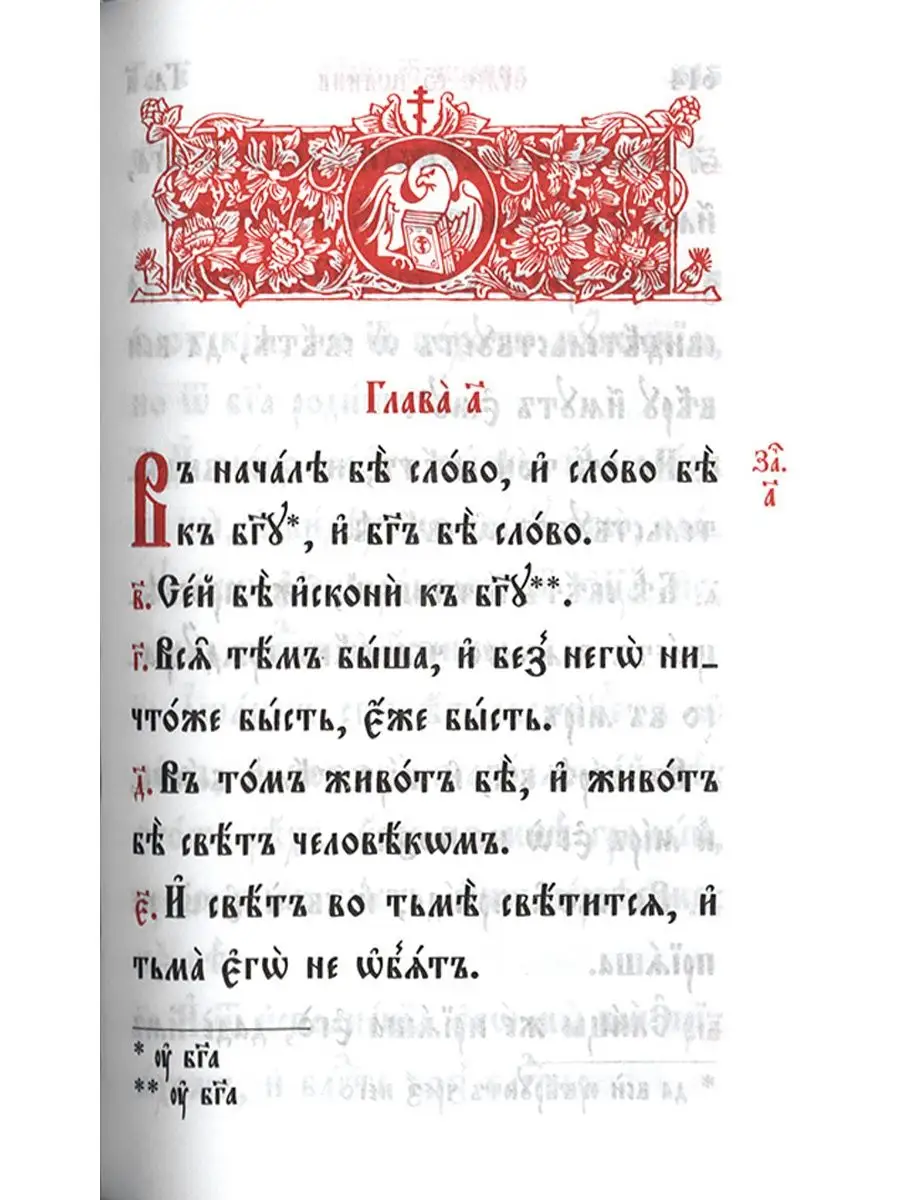 Глава̀ а҃
Въ нача́лѣ бѣ̀ сло́во, и҆ сло́во бѣ̀
за҄.
а҃
къ бг҃ꙋ*, и҆ бг҃ъ бѣ̀ сло́во.
в҃. Се́й бѣ̀ и҆сконѝ къ бг҃ꙋ**.
г҃. Всѧ̑ тѣ́мъ бы́ша, и҆ без̾ негѡ̀ ни_
что́же бы́сть, є҆́же бы́сть.
д҃. Въ то́мъ живо́тъ бѣ̀, и҆ живо́тъ
бѣ̀ свѣ́тъ человѣ́кѡмъ.
є҃. И҆ свѣ́тъ во тьмѣ̀ свѣ́титсѧ, и҆
тьма̀ є҆гѡ̀ не ѡ҆б̾ѧ́тъ.
* ᲂу҆ бг҃а
** ᲂу҆ бг҃а